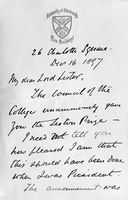 26 Charlotte Square.
Dec 16 1897
My dear Lord Lister,
The Council of the
College unanimously gave
you the Lister Prize —
I need not tell you
how pleased I am that
this should have been done
when I was President.
The announcement was